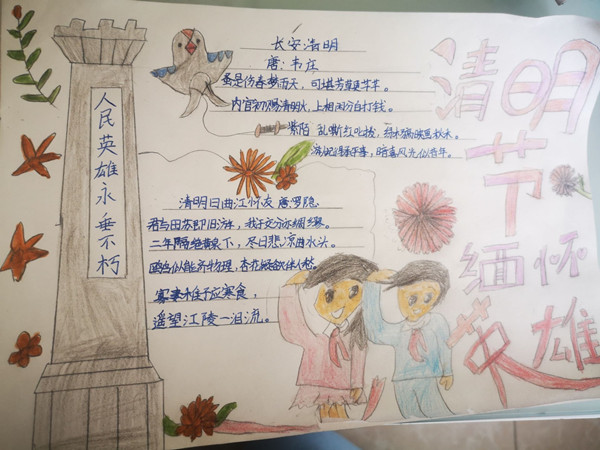 长安清明
唐:韦庄
蚤是伤春梦雨天,可堪芳草更芊芊。
内官初赐清明火,上相闲分白打钱。
紫陌乱嘶红叱拨,绿杨高映画秋千。
游人记得承平事,暗喜风光似昔年。
清明日曲江怀友 唐罗隐
君与田苏即旧游,我于交分亦绸缪。
二年隔绝黄泉下,尽日悲凉曲水头。
鸥鸟似能齐物理,杏花疑欲伴人愁。
寡妻稚子应寒食,
遥望江陵一泪流。
人民英雄永垂不朽
清明
节
缅怀
英雄